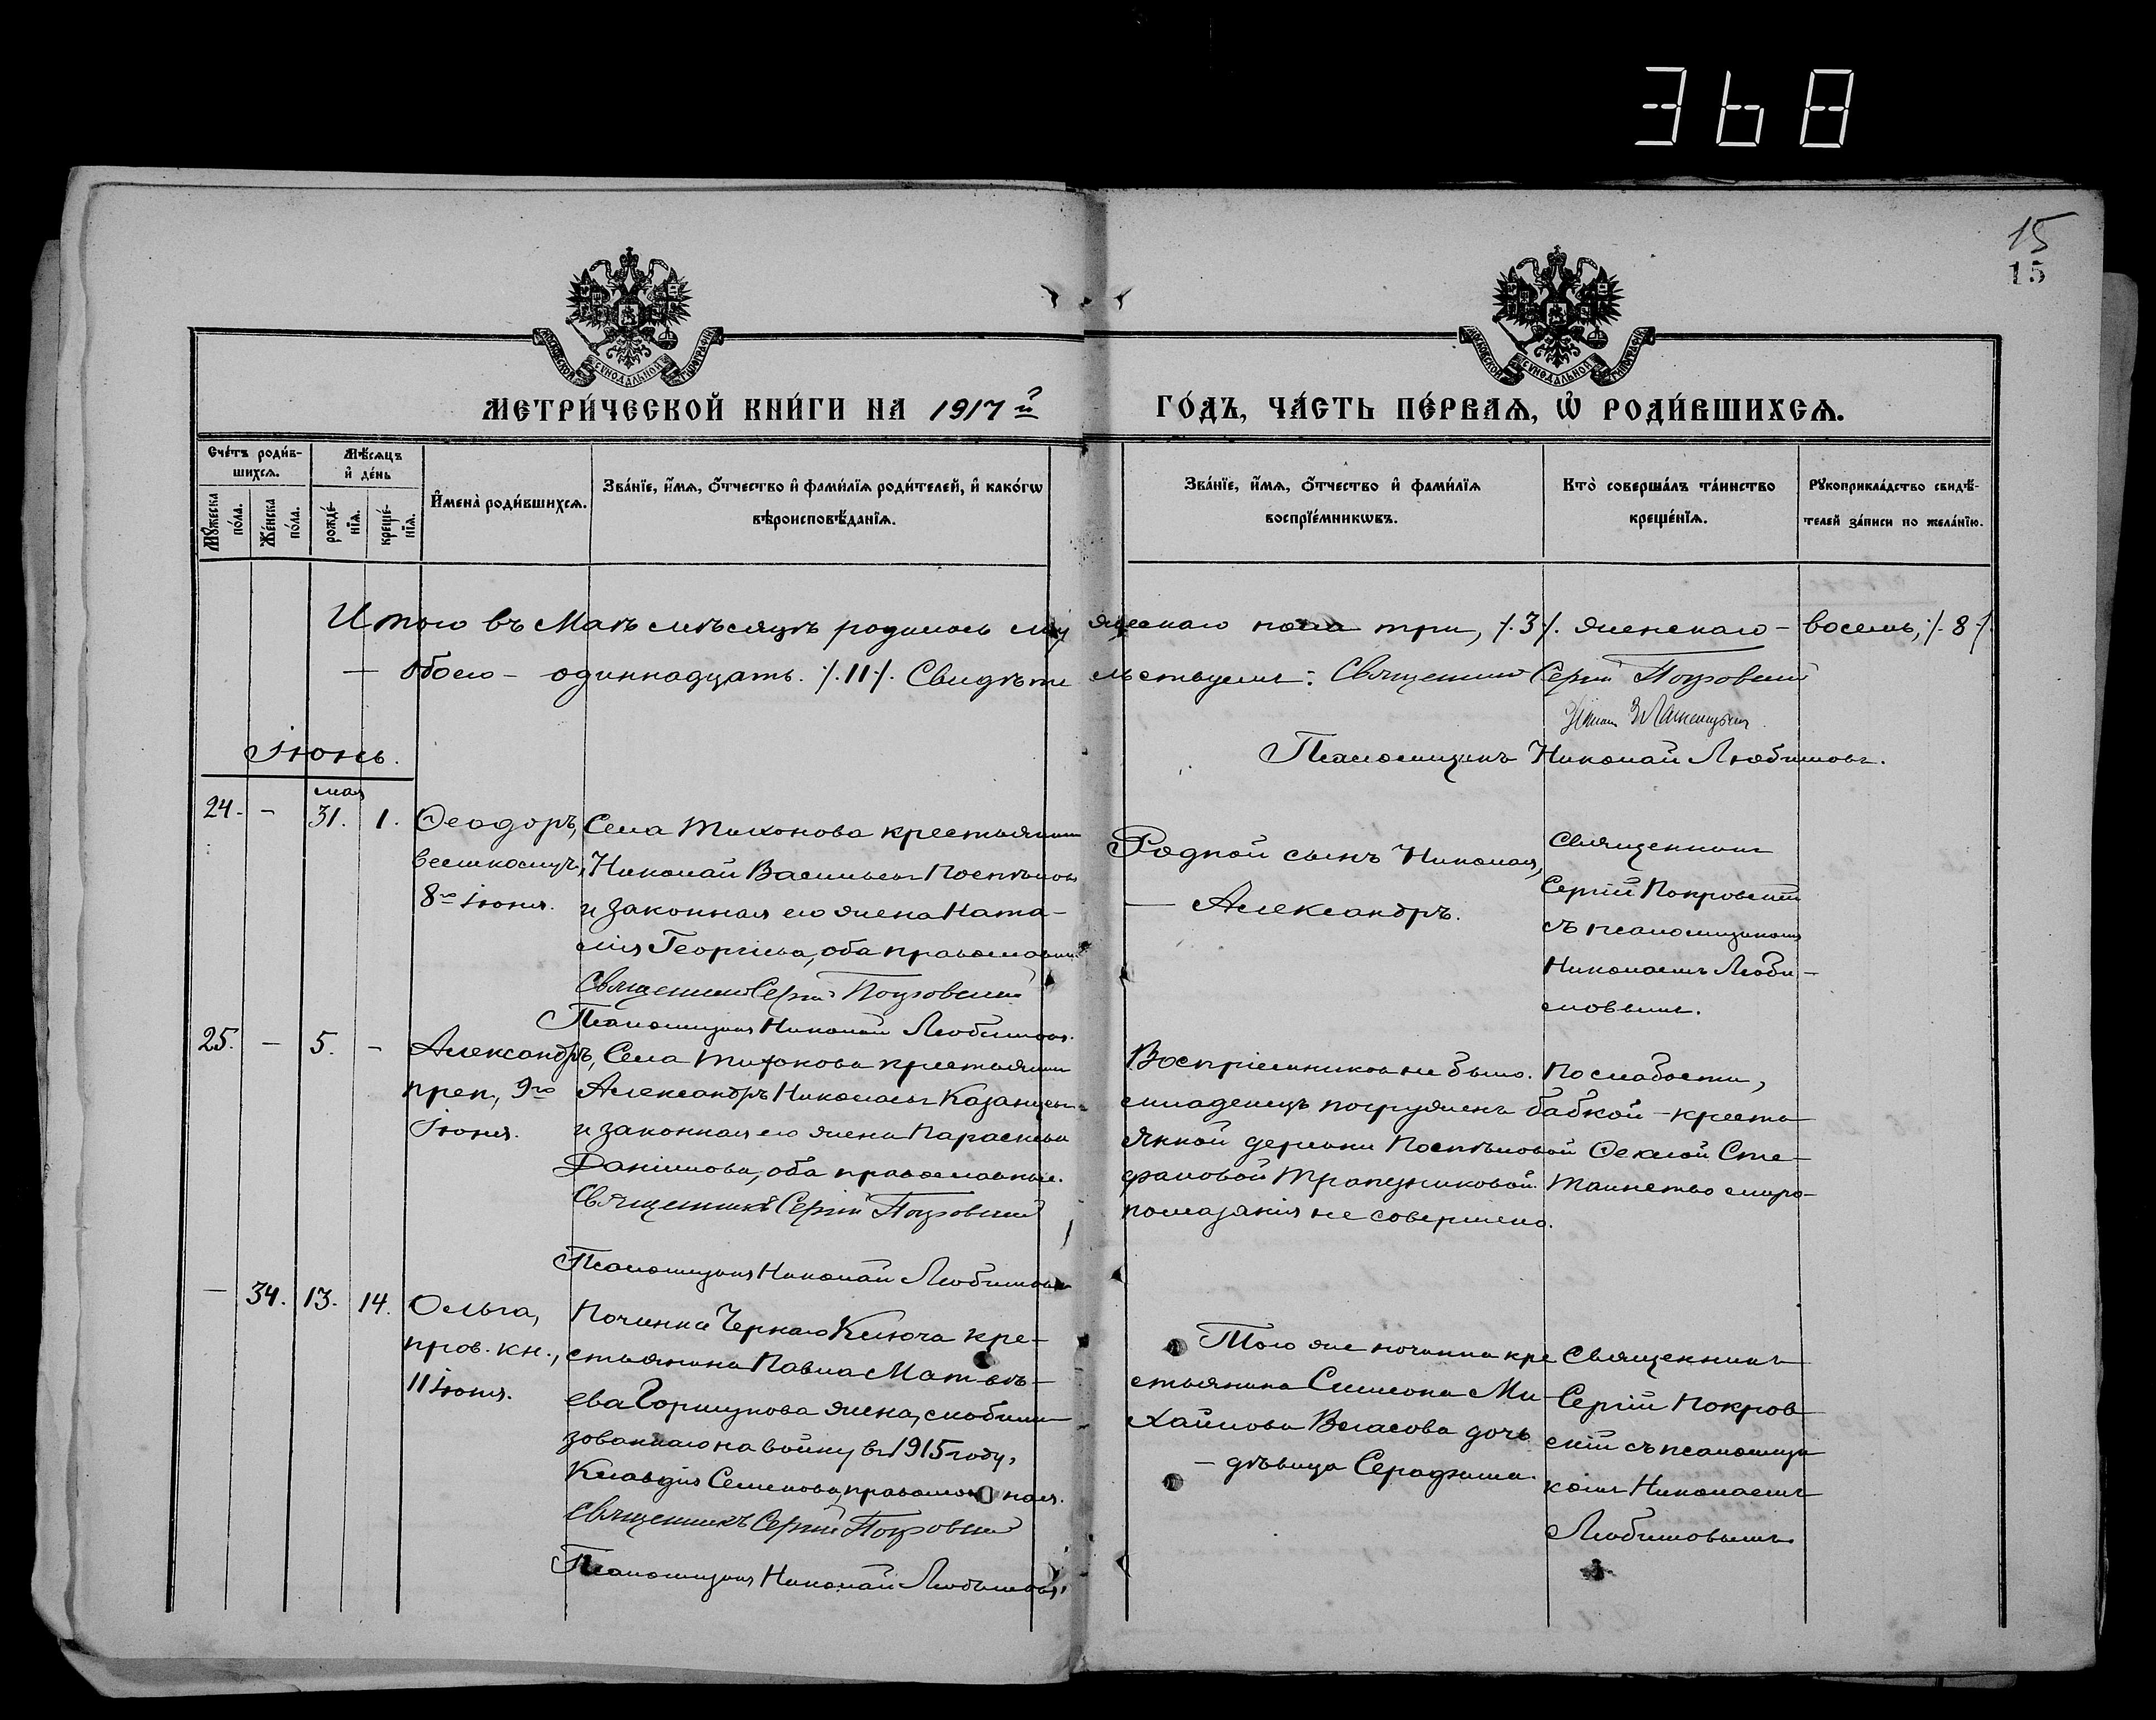 368
15
15
МОСКОВСКОЙ СУНОДАЛЬНОЙ ТИПОГРАФІИ
МОСКОВСКОЙ СУНОДАЛЬНОЙ ТИПОГРАФІИ
МЕТРИ́ЧЕСКОЙ КНИ́ГИ НА 1917 й ГО́ДЪ, ЧА́СТЬ ПЕ́РВАѦ, Ѡ҆ РОДИ́ВШИХСѦ.
Сче́тъ роди́в-
шихсѧ.
Мѣ́сѧцъ
и҆ де́нь
Мꙋ́жеска
по́ла.
Же́нска
по́ла.
рожде́-
нїѧ.
креще́-
нїѧ.
И҆мена̀ роди́вшихсѧ.
Зва́нїе, и҆́мѧ, ѻ҆́тчество и҆ фами́лїѧ роди́телей, и҆ како́гѡ
вѣроисповѣ́данїѧ.
Зва́нїе, и҆́мѧ, ѻ҆́тчество и҆ фами́лїѧ
воспрїе́мникѡвъ.
Кто̀ соверша́лъ та́инство
креще́нїѧ.
Рꙋкоприкла́дство свидѣ́-
телей за́писи по жела́нїю.
Итого въ Маѣ мѣсяцѣ родилось мужескаго пола три, /.3/. женскаго – восемь, /.8/.
– обоего – одиннадцать. /.11/. Свидѣтельствуемъ: Священникъ Сергій Покровскій
Псаломщикъ Николай Любимовъ.
Іюнь.
24. – мая 31. 1.
Ѳеодоръ,
великомуч.,
8го Іюня.
Села Тихонова крестьянинъ
Николай Васильевъ Поспѣловъ
и законная его жена Ната-
лія Георгіева, оба православные
Священникъ Сергій Покровскій
Псаломщикъ Николай Любимовъ.
Родной сынъ Николая,
– Александръ.
Священникъ
Сергій Покровскій
съ псаломщикомъ
Николаемъ Люби-
мовымъ.
25. – 5. –
Александръ,
преп., 9го
Іюня.
Села Тихонова крестьянинъ
Александръ Николаевъ Казанцевъ
и законная его жена Параскева
Даніилова, оба православные.
Священникъ Сергій Покровскій
Псаломщикъ Николай Любимовъ
Воспріемниковъ не было. По слабости,
младенецъ погруженъ бабкой – кресть
янкой деревни Поспѣловой Ѳеклой Сте-
фановой Трапезниковой. Таинство мѵро-
помазанія не совершено.
– 34. 13. 14.
Ольга,
прав. кн.,
11 Іюня.
Починка Чернаго Ключа кре-
стьянина Павла Матвѣ-
ева Горшунова жена, мобили
зованнаго на войну въ 1915 году,
Клавдія Семенова, православная.
Священникъ Сергій Покровскій
Псаломщикъ Николай Любимовъ.
Того же починка кре
стьянина Симеона Ми
хайлова Власова дочь
– дѣвица Серафима.
Священникъ
Сергій Покров
скій съ псаломщи
комъ Николаемъ
Любимовымъ.